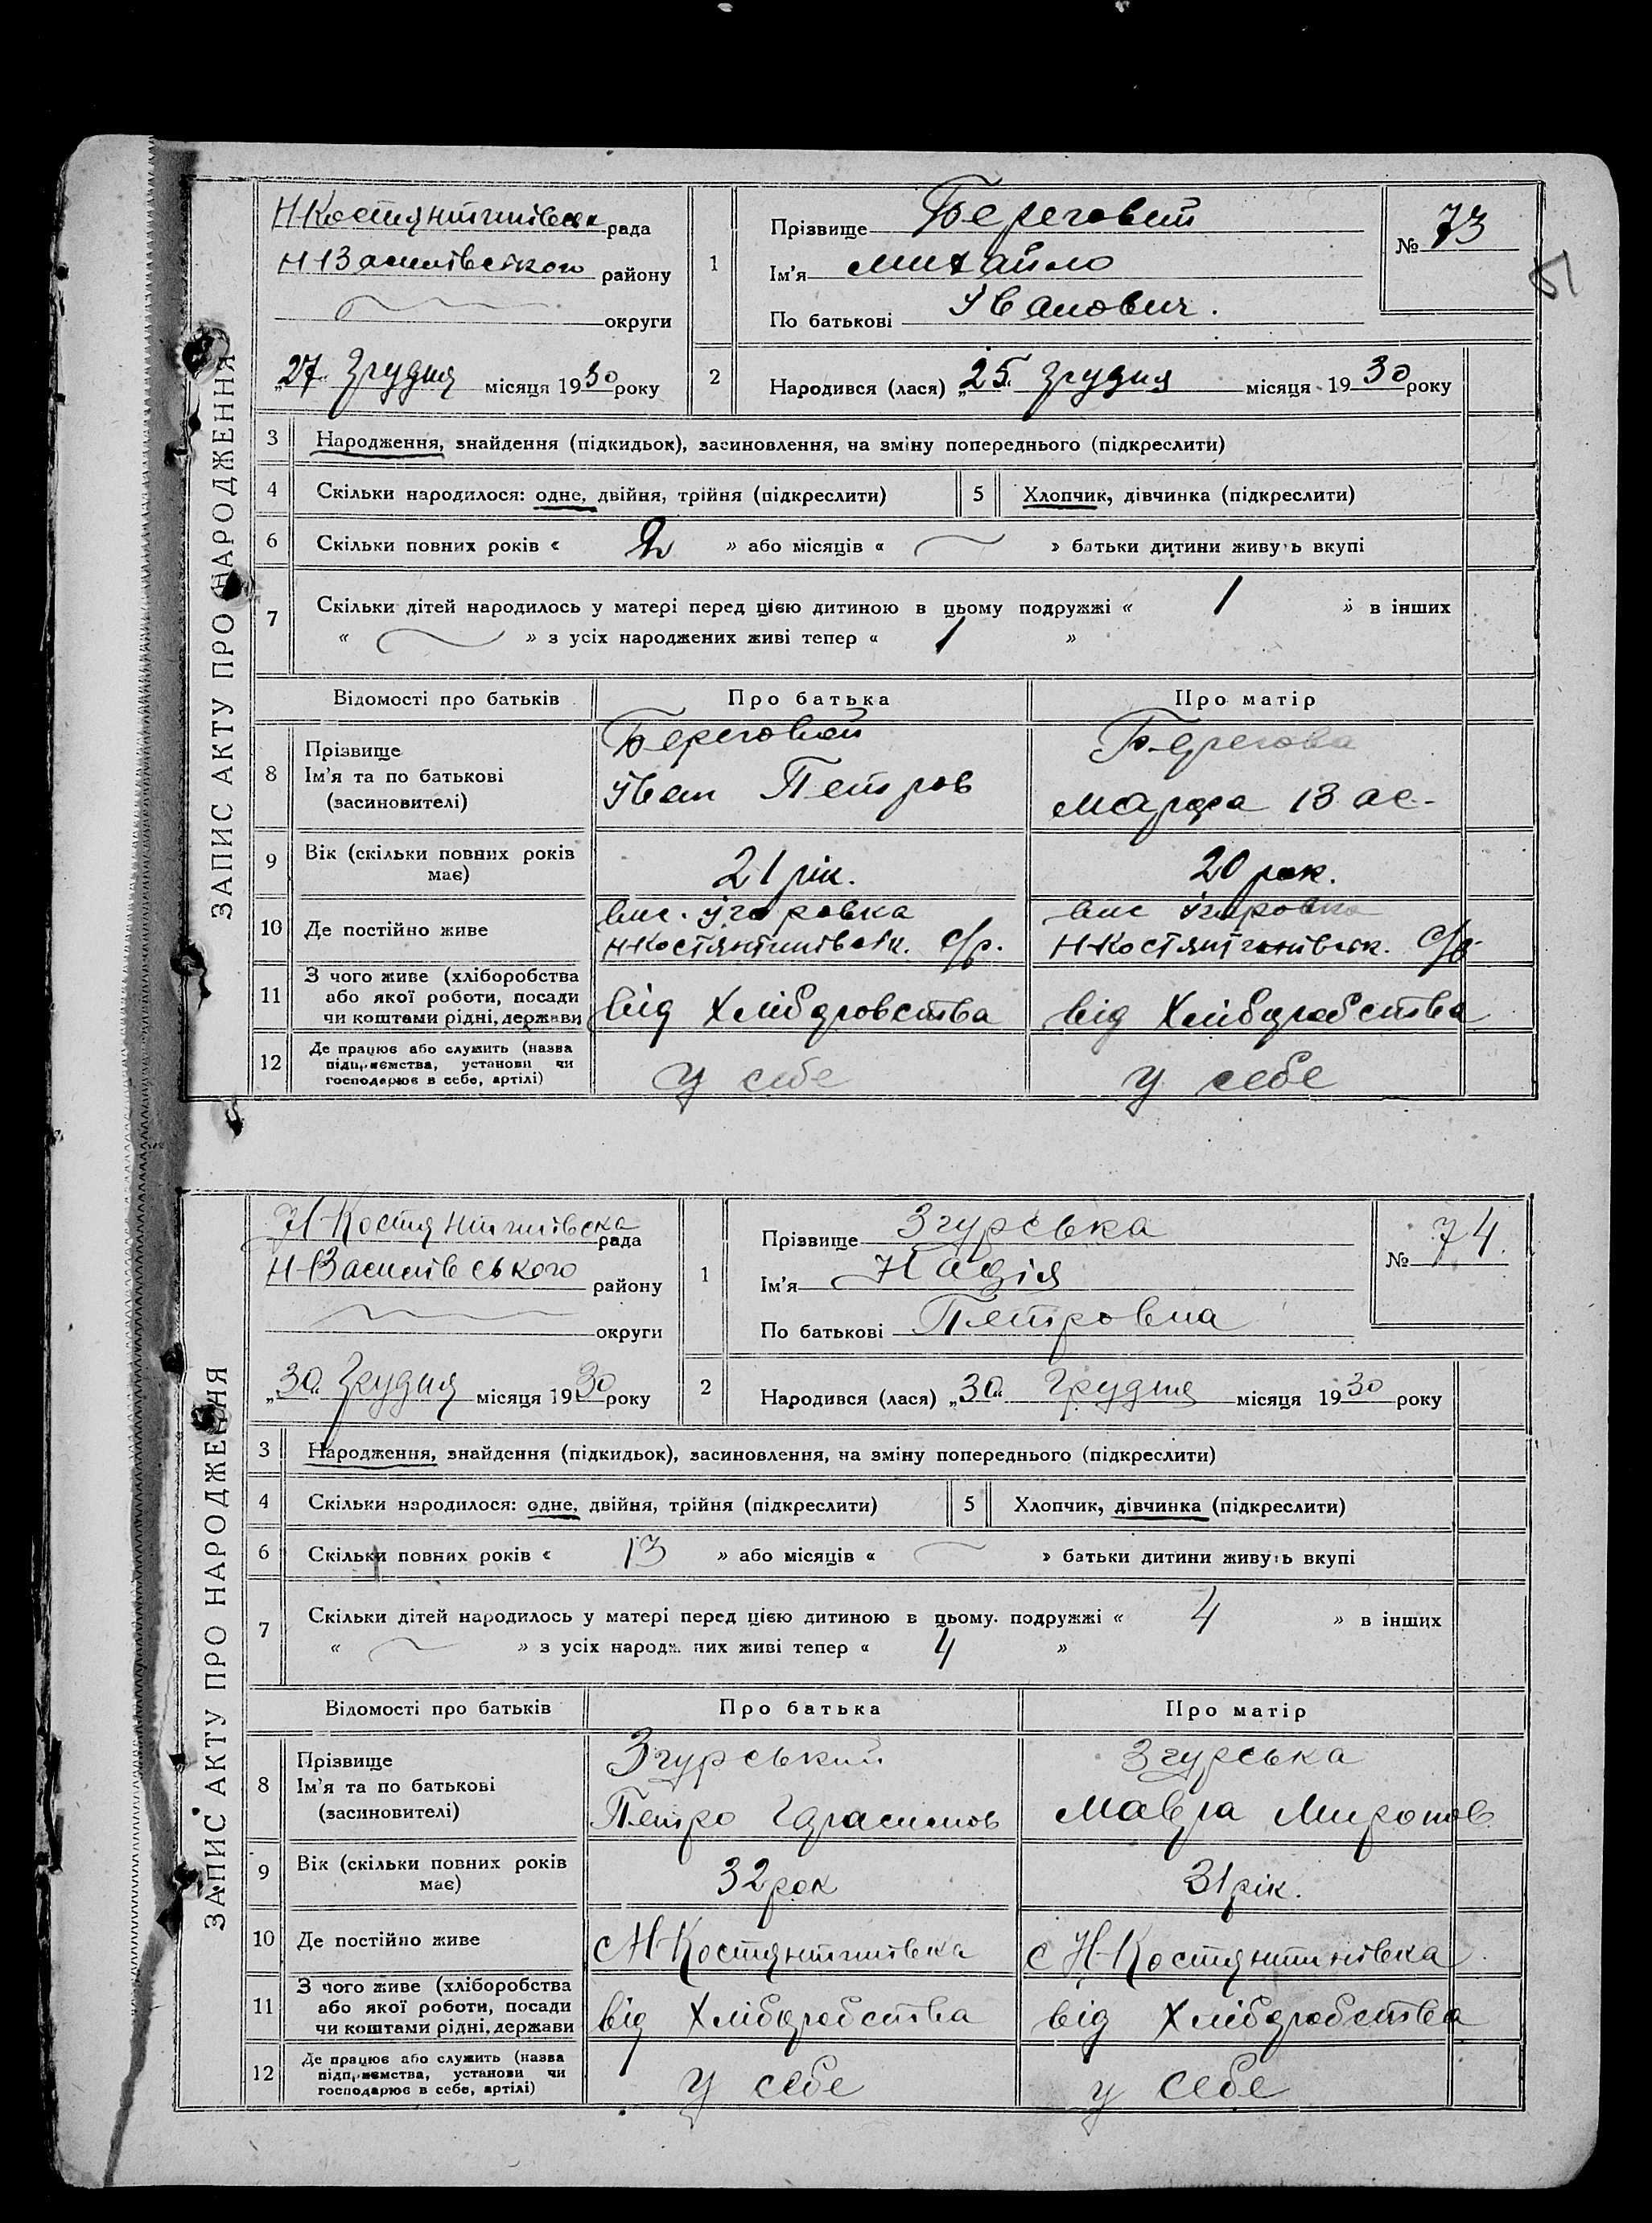 ЗАПИС АКТУ ПРО НАРОДЖЕННЯ
Н-Костянтинівська рада
Н-Василівського району
округи
„27“ Грудня місяця 1930 року
1
Прізвище Береговий
Ім'я Михайло
По батькові Іванович.
№ 73
51
2
Народився (лася) „25“ Грудня місяця 1930 року
3 Народження, знайдення (підкидьок), засиновлення, на зміну попереднього (підкреслити)
4 Скільки народилося: одне, двійня, трійня (підкреслити) 5 Хлопчик, дівчинка (підкреслити)
6 Скільки повних років « 2 » або місяців « » батьки дитини живуть вкупі
7 Скільки дітей народилось у матері перед цією дитиною в цьому подружжі « 1 » в інших
« » з усіх народжених живі тепер « 1 »
Відомості про батьків Про батька Про матір
8 Прізвище
Ім'я та по батькові
(засиновителі)
Береговий
Іван Петров
Берегова
Марфа Вас-
9 Вік (скільки повних років
має)
21 рік. 20 рок.
10 Де постійно живе
вис. Ігоровка
Н-Костянтинівськ. С/р.
вис Ігоровка
Н-Костянтинівськ. С/р
11 З чого живе (хліборобства
або якої роботи, посади
чи коштами рідні, держави
від Хліборовства від Хліборобства
12 Де працює або служить (назва
підприємства, установи чи
господарює в себе, артілі)
у себе у себе
ЗАПИС АКТУ ПРО НАРОДЖЕННЯ
Н-Костянтинівска рада
Н-Василівського району
округи
„30“ Грудня місяця 1930 року
1
Прізвище Згурська
Ім'я Надія
По батькові Петровна
№ 74.
2
Народився (лася) „30“ Грудня місяця 1930 року
3 Народження, знайдення (підкидьок), засиновлення, на зміну попереднього (підкреслити)
4 Скільки народилося: одне, двійня, трійня (підкреслити) 5 Хлопчик, дівчинка (підкреслити)
6 Скільки повних років « 13 » або місяців « » батьки дитини живуть вкупі
7 Скільки дітей народилось у матері перед цією дитиною в цьому. подружжі « 4 » в інших
« » з усіх народжених живі тепер « 4 »
Відомості про батьків Про батька Про матір
8 Прізвище
Ім'я та по батькові
(засиновителі)
Згурський
Петро Гарасимов
Згурська
Мавра Миронов
9 Вік (скільки повних років
має)
32 рок 31 рік.
10 Де постійно живе
с Н-Костянтинівка с Н-Костянтинівка
11 З чого живе (хліборобства
або якої роботи, посади
чи коштами рідні, держави
від Хліборобства від Хліборобства
12 Де працює або служить (назва
підприємства, установи чи
господарює в себе, артілі)
у себе у себе